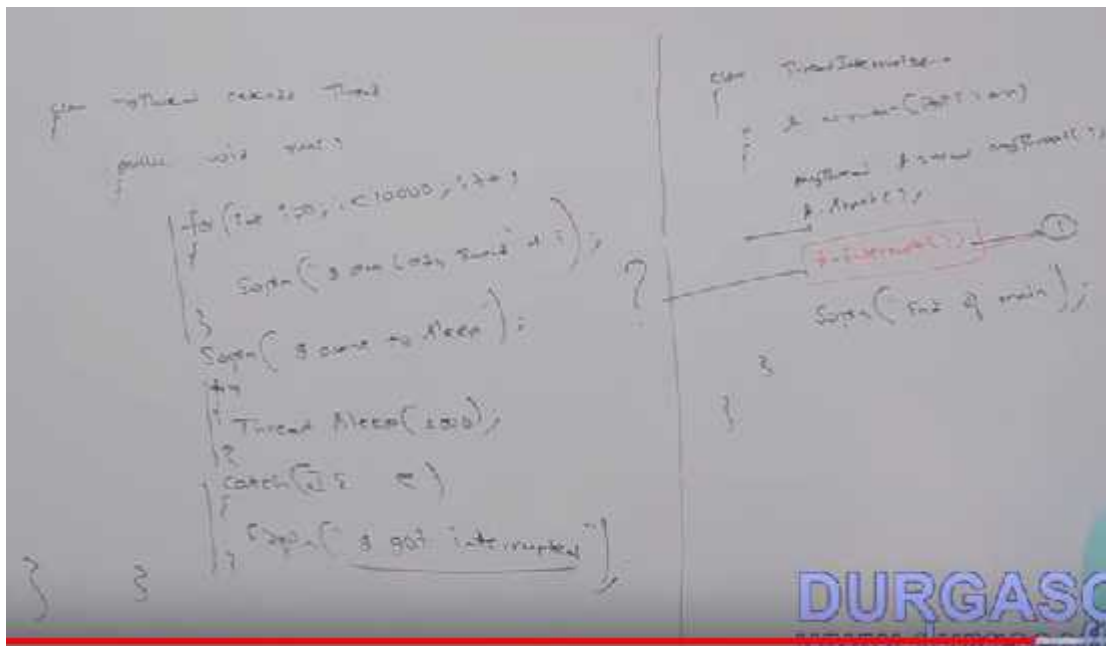 class myThread extends Thread
{
public void run()
{
for(int i=0; i<10000; i++)
{
Sopln("I am lazy Thread" + i);
}
Sopln("I want to sleep");
try
{
Thread.sleep(1000);
}
catch(IE e)
{
Sopln("I got interrupted");
}
}
}
?
class
{
main(
{
myThread t = new myThread();
t.start();
t.interrupt(); ①
Sopln("End of main");
}
}
DURGASO